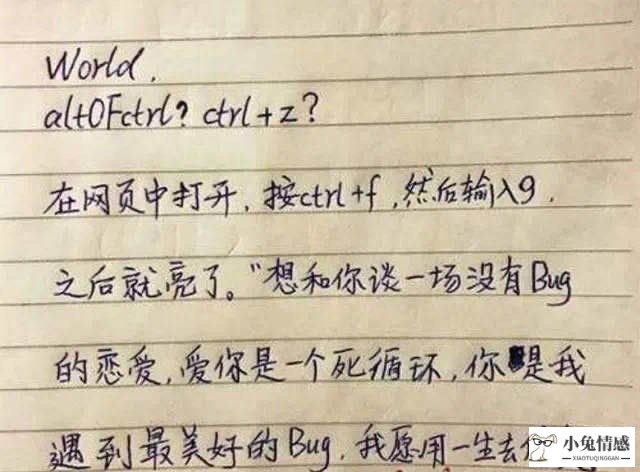 World,
alt0Fctrl? ctrl+z?
在网页中打开,按ctrl+f,然后输入9,
之后就亮了。"想和你谈一场没有Bug
的恋爱,爱你是一个死循环,你是我
遇到最美好的Bug.我愿用一生去
小兔情感
XIAOTUQINGGAN